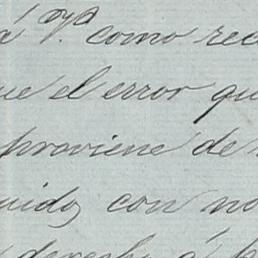 á V.ª como rec
ue el error qu
proviene de
uido, con no
derecho á